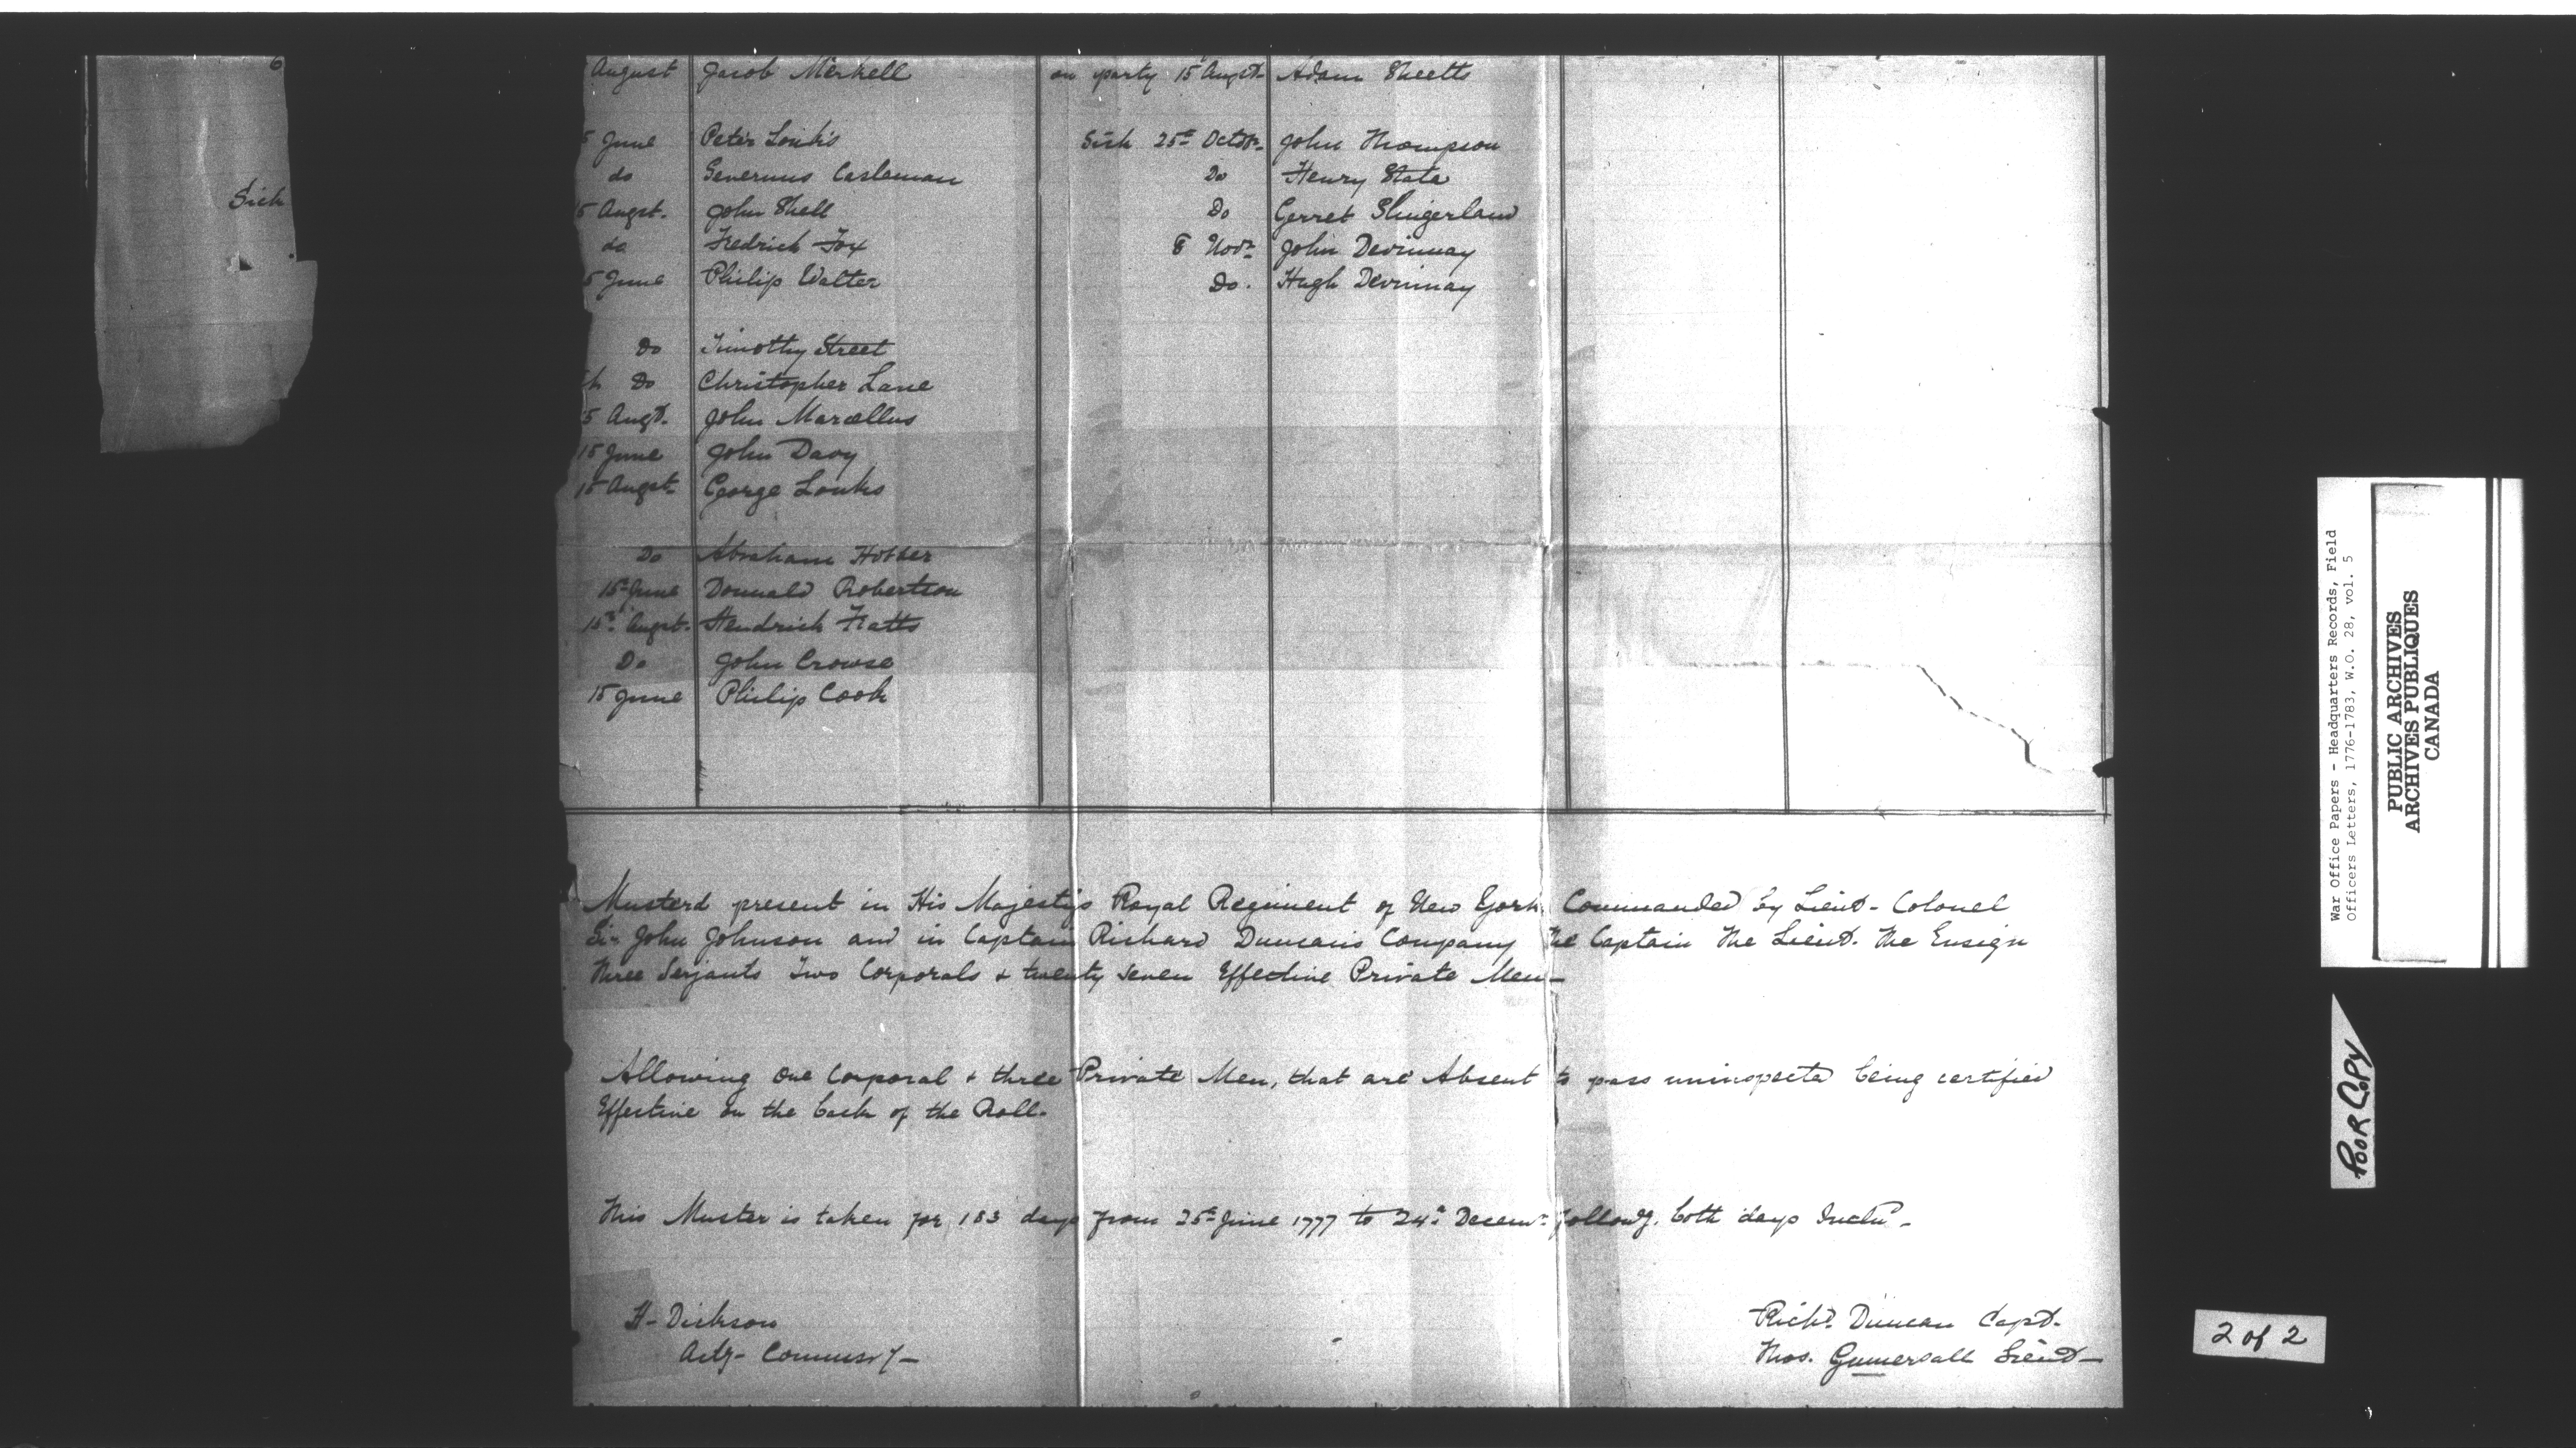 6
Sick
August Jacob Merkell on party 15 Augst- Adam Sheetts
5 June Peter Louks Sick 25th Octobr- John Thompson
do Severnus Casleman Do Henry State
5 Augst. John Shell Do Gerret Slingerland
do Fredrich Fox 8 Novr- John Devinnay
5 June Philip Walter Do. Hugh Devinnay
Do Timothy Street
Do Christopher Lane
5 Augt. John Marcellus
15 June John Davy
15 Augst- George Louks
Do Abraham
15th June Donnald Robertson
15th Augst. Hendrick Flatts
Do John Crowse
15 June Philip Cook
Musterd present in His Majesty's Royal Regiment of New York Commanded by Lieut- Colonel
Sir John Johnson and in Captain Richard Duncan's Company The Captain The Lieut. The Ensign
Three Serjants Two Corporals & twenty seven Effective Private Men-
Allowing one Corporal & three Private Men, that are Absent to pass uninspecta being certified
Effective on the back of the Roll.
This Muster is taken for 183 days from 25th June 1777 to 24th Decemr followg. both days Inclu-
H- Dickson
Actg- Commissry-
Richd. Duncan Capt.
Thos. Gumersall Lieut-
War Office Papers - Headquarters Records, Field
Officers Letters, 1776-1783, W.O. 28, vol. 5
PUBLIC ARCHIVES
ARCHIVES PUBLIQUES
CANADA
POOR COPY
2 of 2